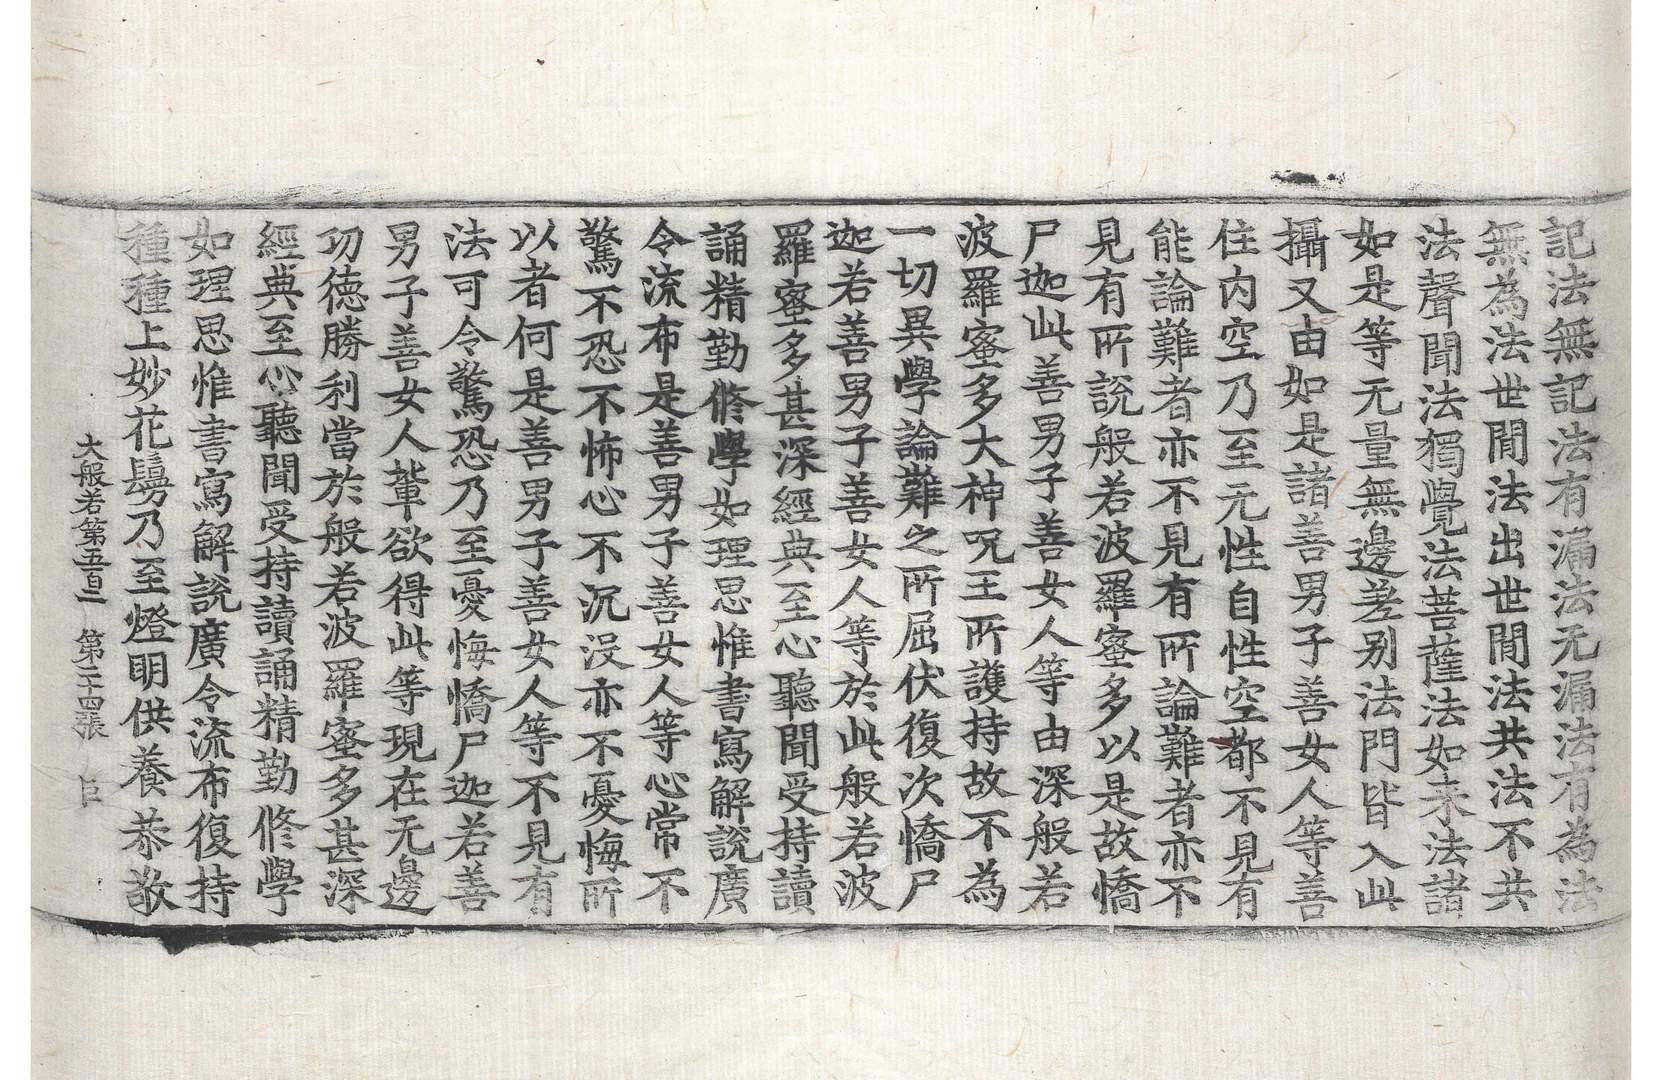 記法無記法有漏法无漏法有為法
無為法世間法出世間法共法不共
法聲聞法獨覺法菩薩法如来法諸
如是等无量無邊差别法門皆入此
攝又由如是諸善男子善女人等善
住內空乃至无性自性空都不見有
能論難者亦不見有所論難者亦不
見有所說般若波羅蜜多以是故憍
尸迦此善男子善女人等由深般若
波羅蜜多大神呪王所護持故不為
一切異學論難之所屈伏復次憍尸
迦若善男子善女人等於此般若波
羅蜜多甚深經典至心聽聞受持讀
誦精勤修學如理思惟書寫解說廣
令流布是善男子善女人等心常不
驚不恐不怖心不沉没亦不憂悔所
以者何是善男子善女人等不見有
法可令驚恐乃至憂悔憍尸迦若善
男子善女人輩欲得此等現在无邊
功德勝利當於般若波羅蜜多甚深
經典至心聽聞受持讀誦精勤修學
如理思惟書寫解說廣令流布復持
種種上妙花鬘乃至燈明供養恭敬
大般若第五百二 第二十四張 巨